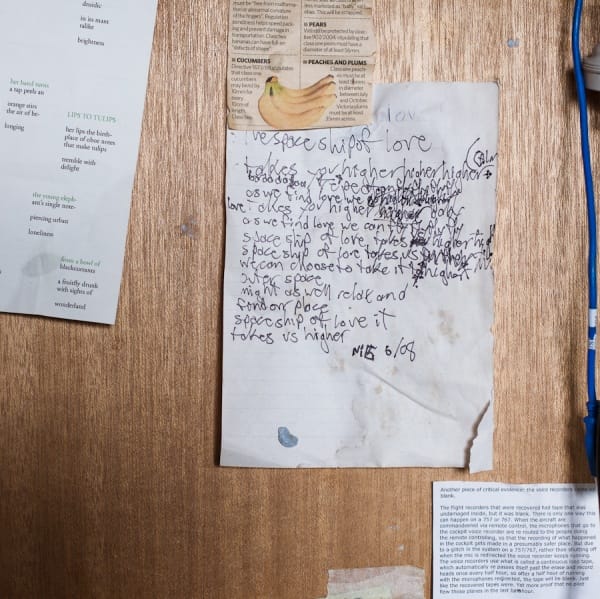 druidic
in its mant
ralike
brightness
her hand turns
a tap peels an
orange stirs
the air of be-
longing
LIPS TO TULIPS
her lips the birth-
place of oboe notes
that make tulips
tremble with
delight
the young eleph-
ant's single note-
piercing urban
loneliness
from a bowl of
blackcurrants
a fruitfly drunk
with sights of
wonderland
must be "free from malforma-
tion or abnormal curvature
of the fingers". Regulation
ponderous helps speed pack-
ing and prevent damage in
transportation. Class two
bananas can have full on
"defects of shape"
■ CUCUMBERS
that class one
cucumbers
may bend by
10mm for
every
10cm of
length.
Class two
marketed as "baby"
■ PEARS
have a
diameter of at least 55mm.
■ PEACHES AND PLUMS
Class one peach-
es must be at
in diameter
between July
and October.
Victoria plums
must be at least
35mm across.
love
The spaceship of love
takes you higher higher higher
Calm
repeat
as we find love we
love takes you higher higher
as we find love we can
space ship of love, takes higher
space ship of love takes us
we can choose to take it higher
outer space
might as well relax and
spaceship of love it
takes us higher
6/08
Another piece of critical evidence: the voice recorders
blank.
The flight recorders that were recovered had tape that was
undamaged inside, but it was blank. There is only one way this
can happen on a 757 or 767. When the aircraft are
commandeered via remote control, the microphones that go to
the cockpit voice recorder are re routed to the people doing
the remote controlling, so that the recording of what happened
in the cockpit gets made in a presumably safer place. But due
to a glitch in the system on a 757/767, rather than shutting off
when the mic is redirected the voice recorder keeps running.
The voice recorders use what is called a continuous loop tape,
which automatically re passes itself past the erase and record
heads once every half hour, so after a half hour of running
with the microphones redirected, the tape will be blank. Just
like the recovered tapes were. Yet more proof that no pilot
flew those planes in the last half hour.